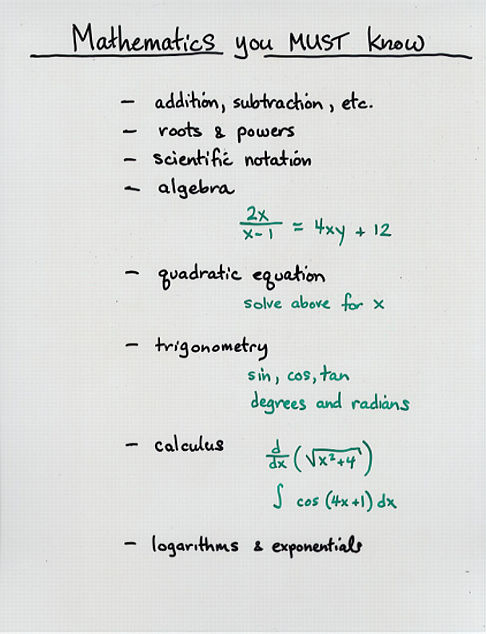 Mathematics you MUST know
- addition, subtraction, etc.
- roots & powers
- scientific notation
- algebra
2x/(x-1) = 4xy + 12
- quadratic equation
solve above for x
- trigonometry
sin, cos, tan
degrees and radians
- calculus d/dx (√(x²+4))
∫ cos (4x+1) dx
- logarithms & exponentials